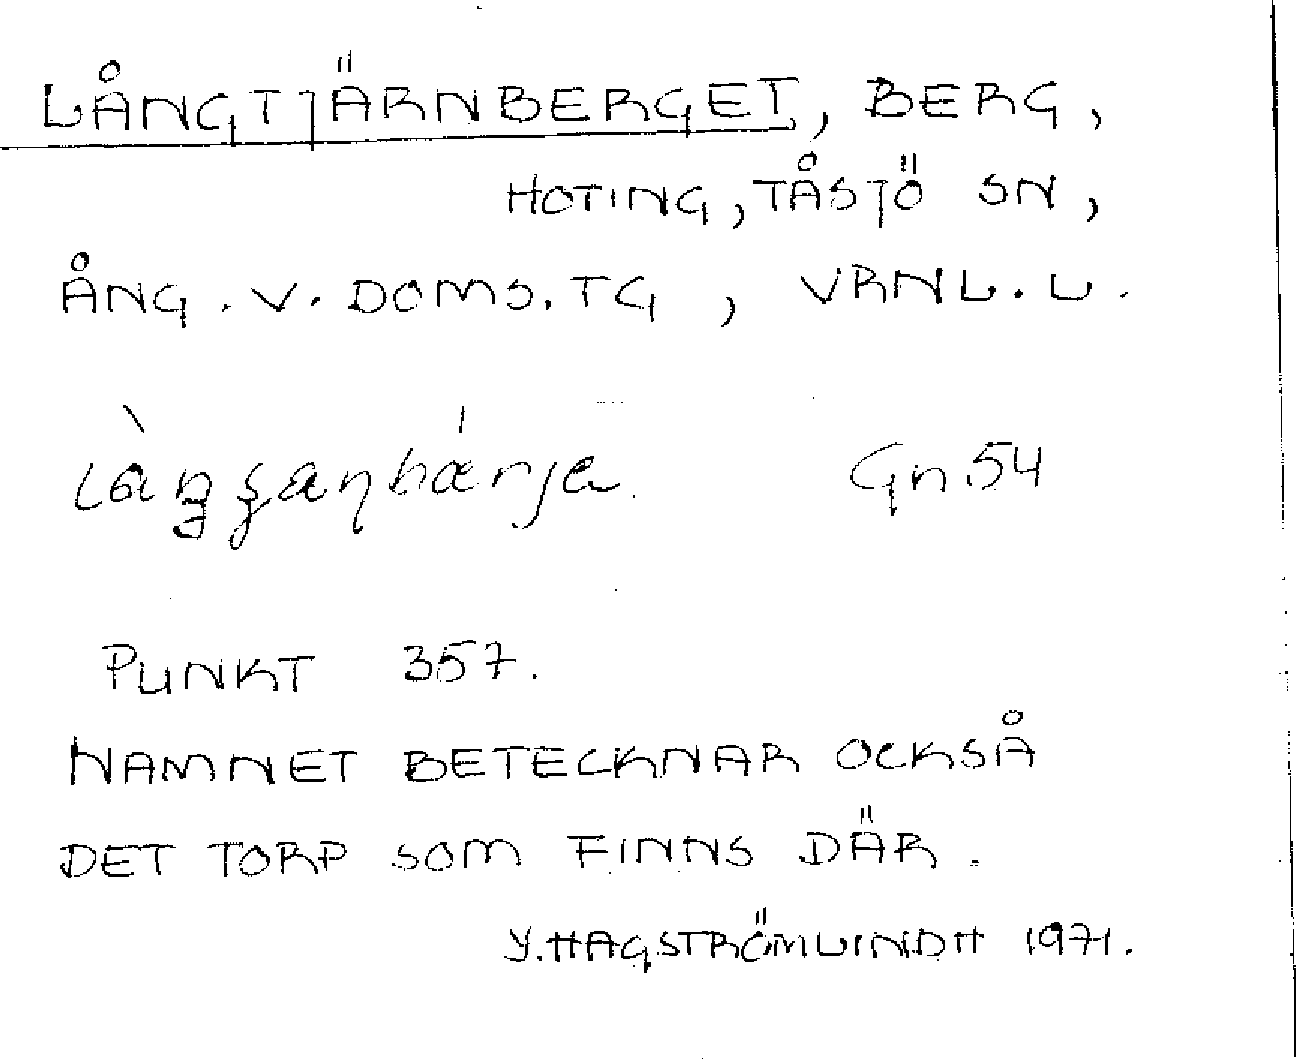 LÅNGTJÄRNBERGET, BERG,
HOTING, TÅSJÖ SN,
ÅNG. V. DOMS. TG, VRNL. L.
Gn 54
PUNKT 357.
NAMNET BETECKNAR OCKSÅ
DET TORP SOM FINNS DÄR.
Y. HAGSTRÖM LINDH 1971.